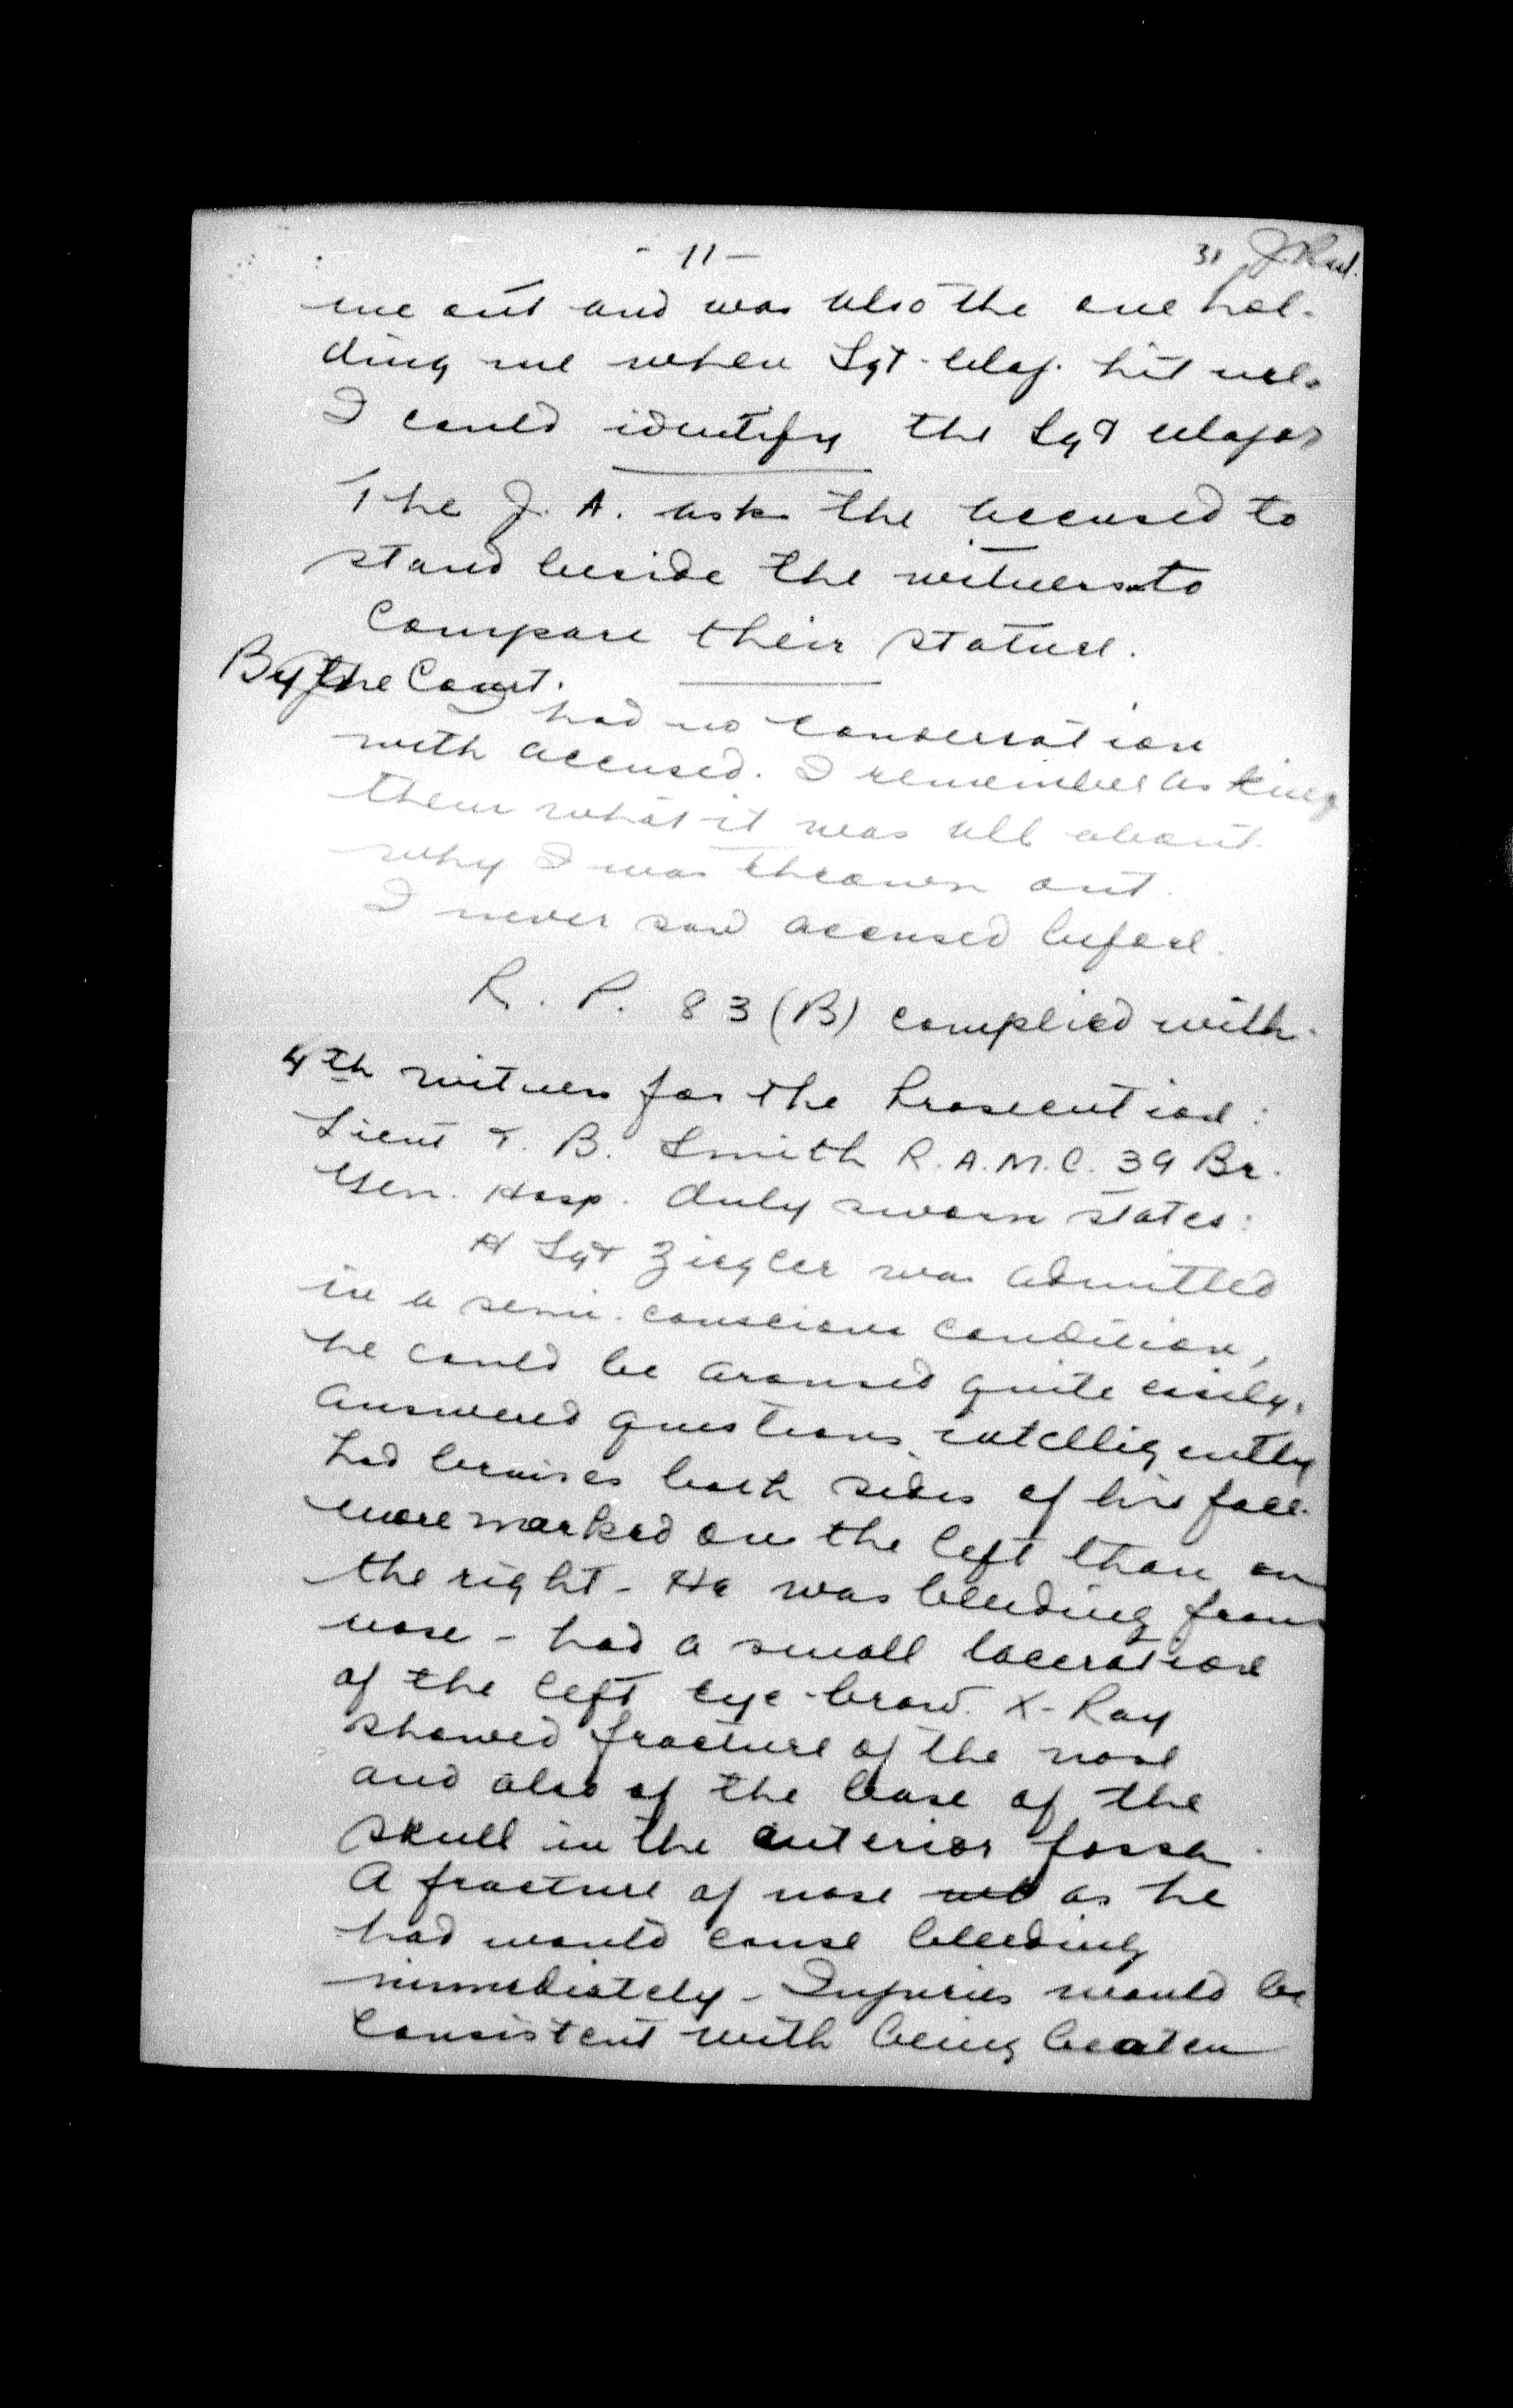 - 11 -
31
me out and was also the one hol-
ding me when Sgt-Maj. hit me.
I could identify the Sgt Major
The J. A. asks the accused to
stand beside the witness to
compare their stature.
By the Court.
I had no conversation
with accused. I remember asking
them what it was all about
why I was thrown out.
I never saw accused before.
R. P. 83 (B) complied with.
4th witness for the Prosecution:
Lieut T. B. Smith R.A.M.C. 39 Br.
Gen. Hosp. duly sworn states:
A Sgt Ziegler was admitted
in a semi-conscious condition,
he could be aroused quite easily,
answered questions intelligently
had bruises both sides of his face
more marked on the left than on
the right - He was bleeding from
nose - had a small laceration
of the left eye-brow. X-Ray
showed fracture of the nose
and also of the base of the
skull in the anterior fossa.
A fracture of nose as he
had would cause bleeding
immediately - Injuries would be
consistent with being beaten